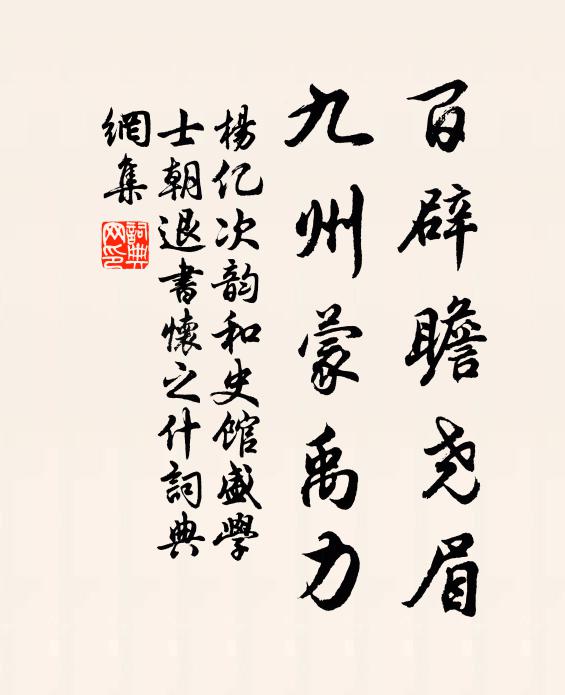 百辟瞻尧眉
九州蒙禹力
楊亿次韵和史馆盛學
士朝退書懷之什詞典
網集
詞典
网印